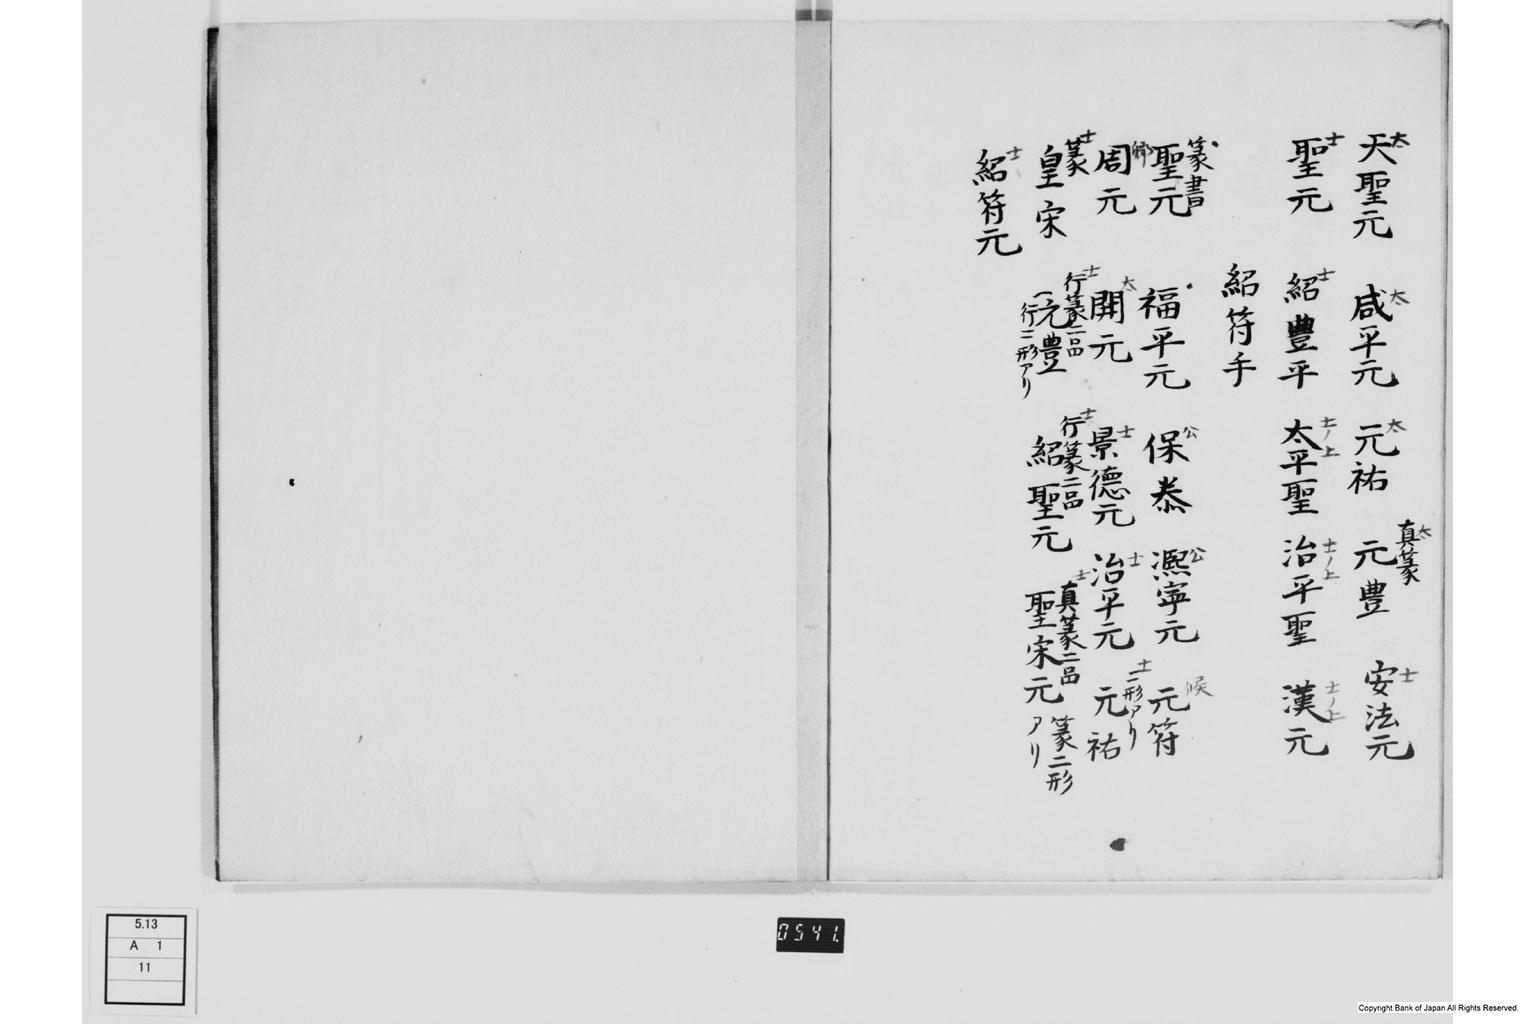 太 天聖元 太 咸平元 太 元祐 太 真篆 元豊 士 安法元
士 聖元 士 紹豊平 士ノ上 太平聖 士ノ上 治平聖 士ノ上 漢元
紹符手
篆書 聖元 福平元 公 保泰 公 熈寧元 候 元符
郷 周元 太 開元 士 景德元 士 治平元 士 二形アリ 元祐
士 篆 皇宋 士 行篆二品 元豊 行二形アリ 士 行篆二品 紹聖元 士 真篆二品 聖宋元 篆二形アリ
士 紹符元
5.13
A 1
11
0541.
Copyright Bank of Japan All Rights Reserved.